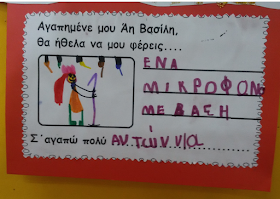 Αγαπημένε μου Άη Βασίλη,
θα ήθελα να μου φέρεις....
ΕΝΑ
ΜΙΚΡΟΦΩΝΟ
ΜΕ ΒΑΣΗ
Σ΄αγαπώ πολύ